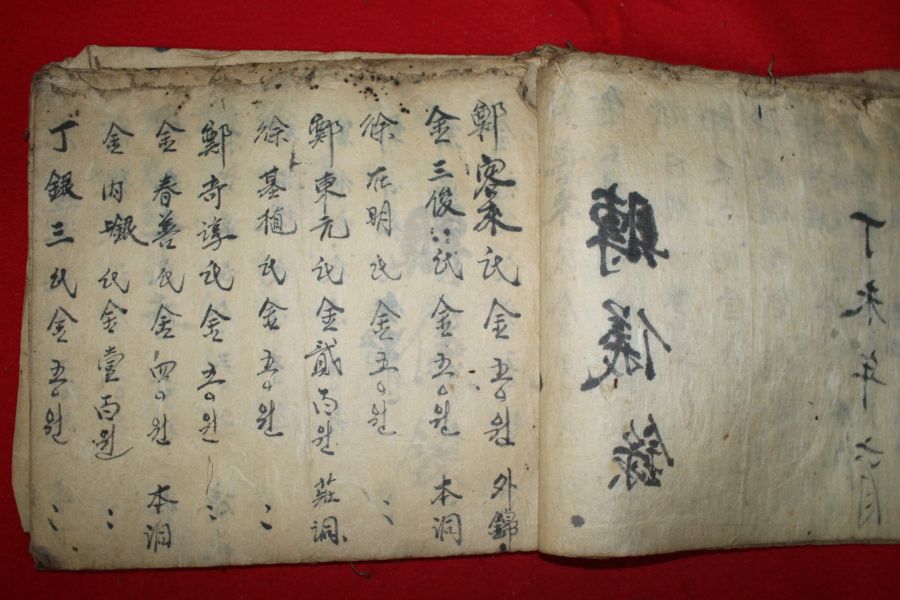 丁未年 六月
賻儀錄
鄭容來氏 金五〇원 外錦
金三俊氏 金五〇원 本洞
徐在明氏 金五〇원 〻
鄭東元氏 金貳百원 莊洞
徐基植氏 金五〇원 〻
鄭奇淳氏 金五〇원 〻
金春善氏 金四〇원 本洞
金內 氏 金壹百원 〻
丁銀三氏 金五〇원 〻